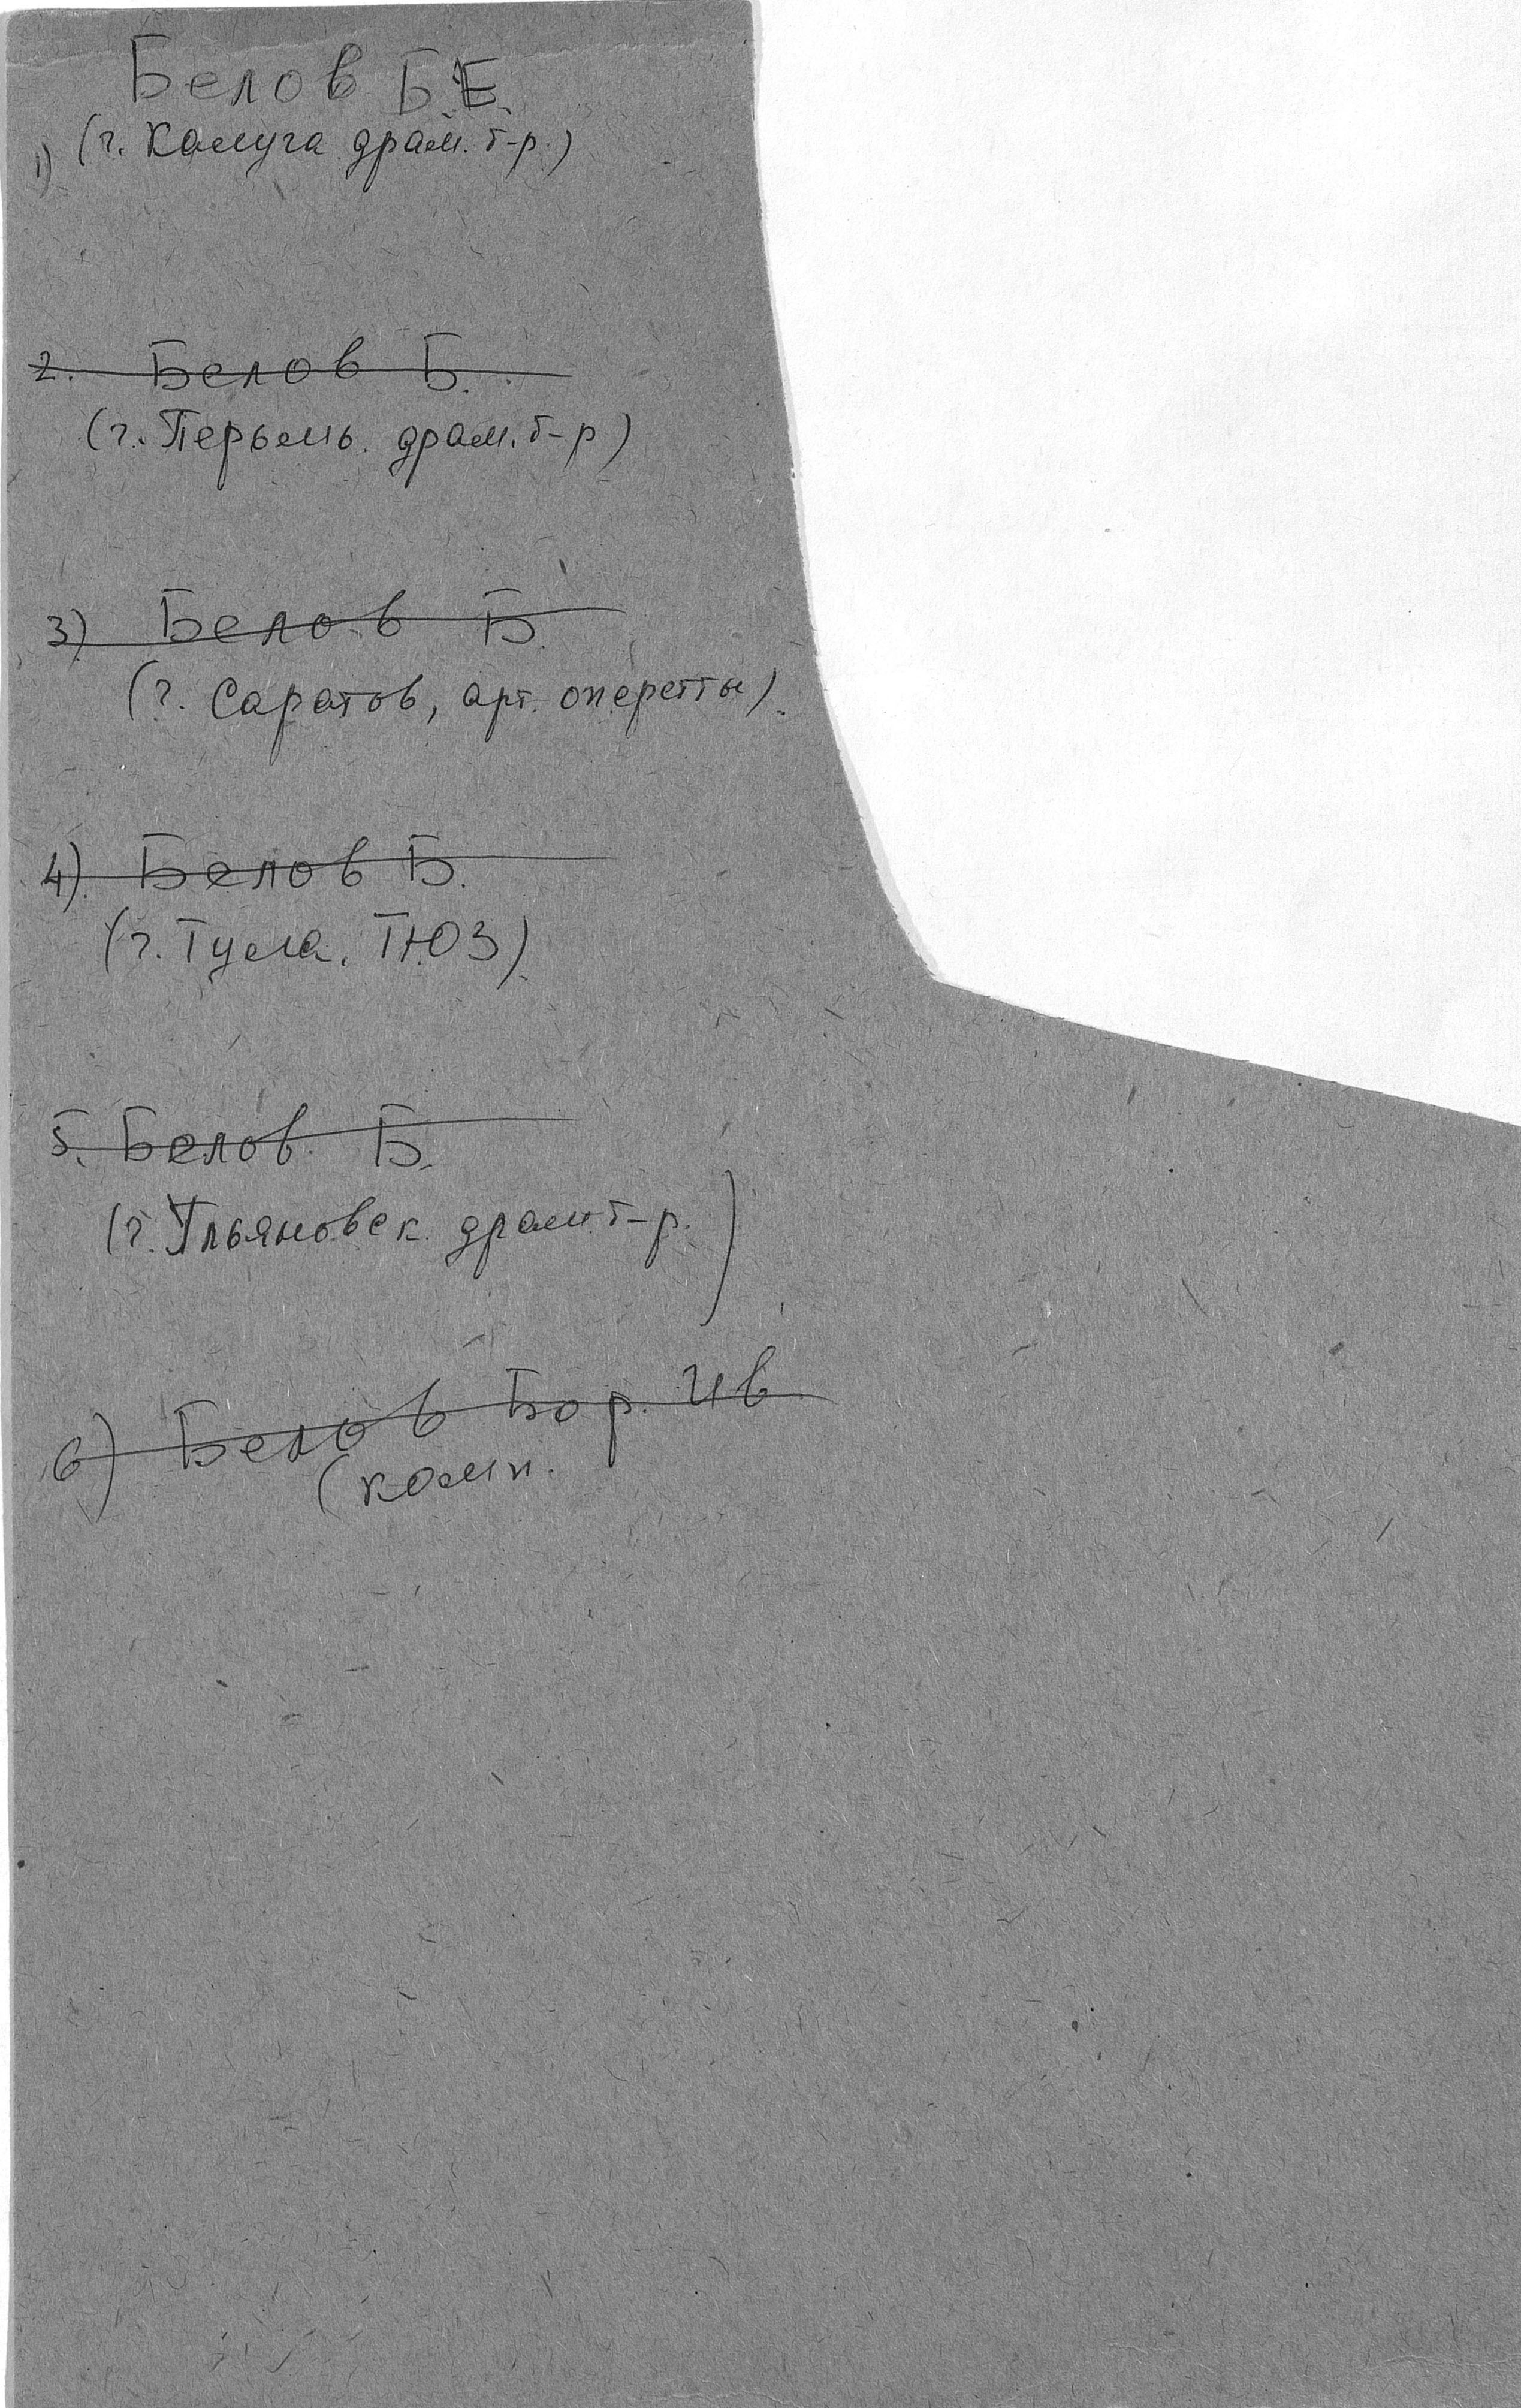 Белов Б.Е.
1) (г. Калуга драм. т-р.)
2. Белов Б.
(г. Перьмь. драм. т-р)
3) Белов Б.
(г. Саратов, арт. оперетты).
4) Белов Б.
(г. Тула. ТЮЗ)
5. Белов Б.
(г. Ульяновск драм т-р.)
6) Белов Бор. Ив
(комп.